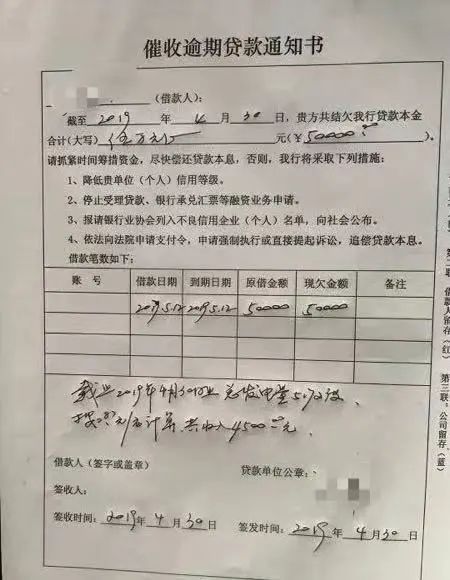 催收逾期贷款通知书
(借款人):
截至 2019 年 4 月 30 日,贵方共结欠我行贷款本金
合计(大写) 伍万元 元(¥ 50000.00 )。
请抓紧时间筹措资金,尽快偿还贷款本息,否则,我行将采取下列措施:
1、降低贵单位(个人)信用等级。
2、停止受理贷款、银行承兑汇票等融资业务申请。
3、报请银行业协会列入不良信用企业(个人)名单,向社会公布。
4、依法向法院申请支付令,申请强制执行或直接提起诉讼,追偿贷款本息。
借款笔数如下:
账 号 借款日期 到期日期 原借金额 现欠金额 备注
5.12 2019.5.12 50000 50000
截止2019年4月30日 总发电量
计算 共收入4500.00元.
借款人(签字或盖章) 贷款单位公章:
签收人:
签收时间: 2019 年 4 月 30 日 签发时间: 2019 年 4 月 30 日
借款人留存(红)
第三联:公司留存(蓝)